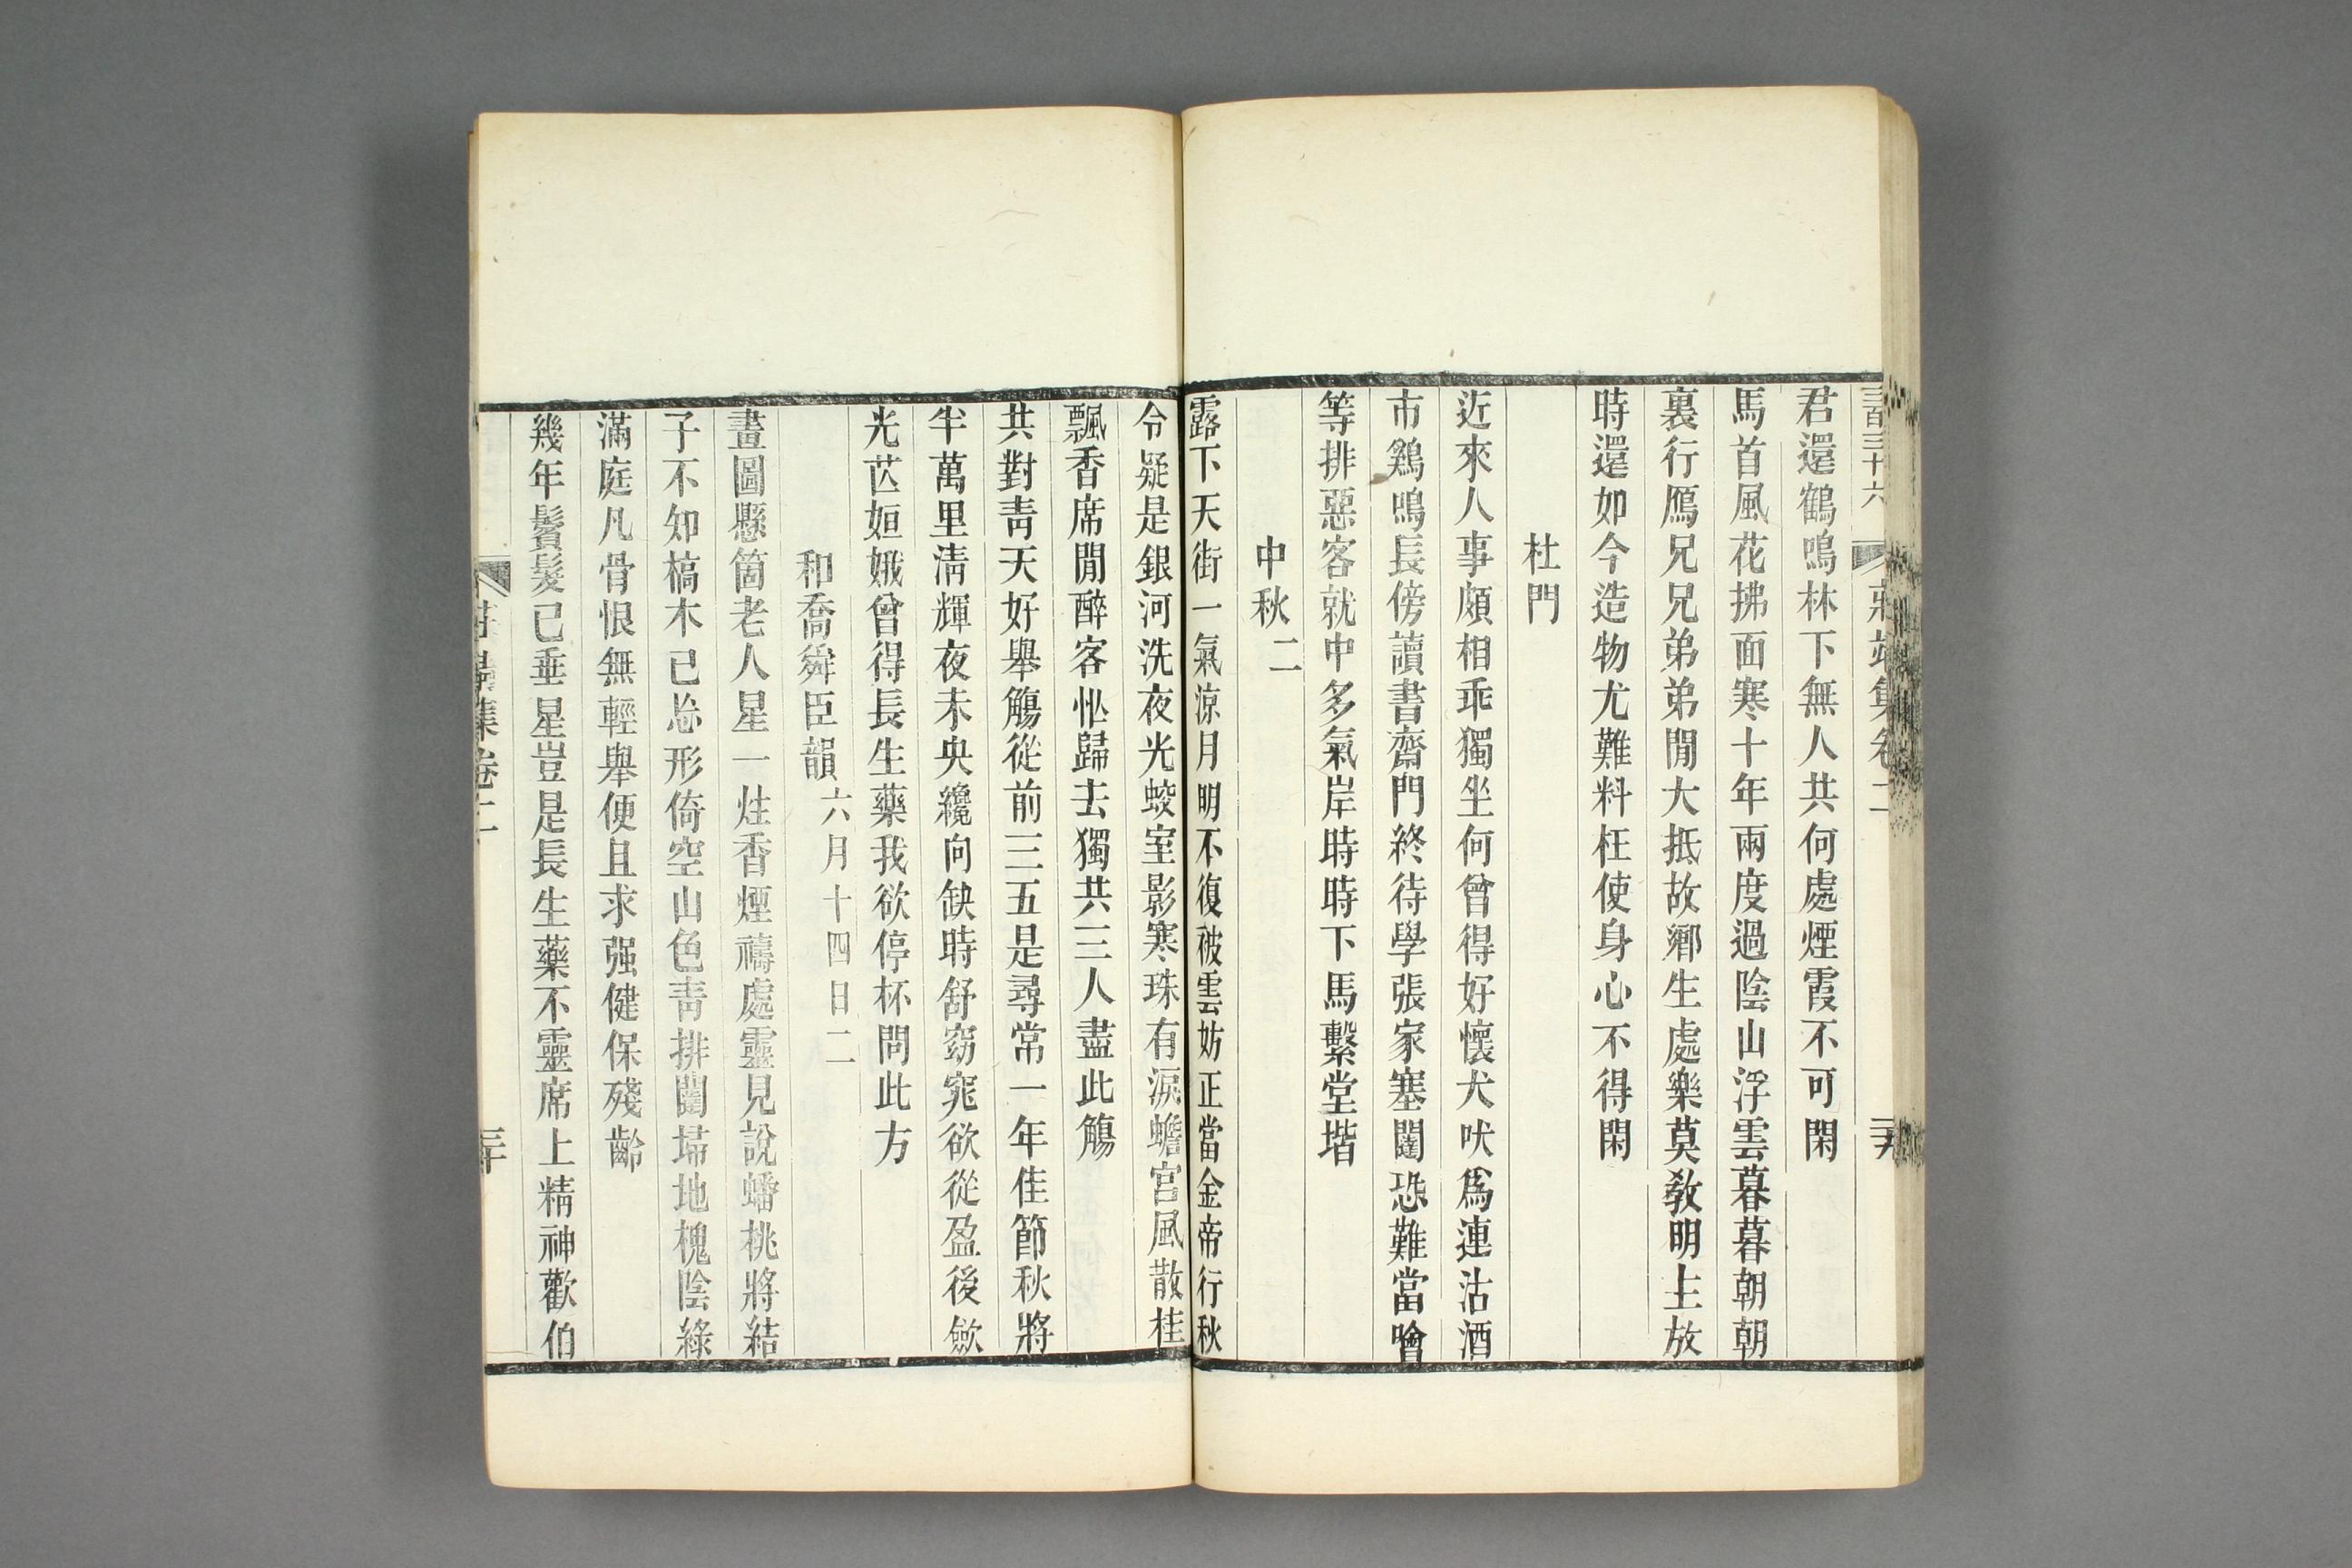 三百三十六 莊靖集卷二 二十九
君還鶴鳴林下無人共何處煙霞不可閑
馬首風花拂面寒十年兩度過陰山浮雲暮暮朝朝
裏行鴈兄兄弟弟閒大抵故鄉生處樂莫教明主放
時還如今造物尤難料枉使身心不得閑
杜門
近來人事頗相乖獨坐何曾得好懷犬吠爲連沽酒
市鷄鳴長傍讀書齋門終待學張家塞閽恐難當噲
等排惡客就中多氣岸時時下馬繫堂堦
中秋二
露下天街一氣涼月明不復被雲妨正當金帝行秋
令疑是銀河洗夜光蛟室影寒珠有淚蟾宮風散桂
飄香席閒醉客怭歸去獨共三人盡此觴
共對青天好舉觴從前三五是尋常一年佳節秋將
半萬里清輝夜未央纔向缺時舒窈窕欲從盈後歛
光芒姮娥曾得長生藥我欲停杯問此方
和喬舜臣韻六月十四日二
畫圖懸箇老人星一炷香煙禱處靈見說蟠桃將結
子不知槁木已忘形倚空山色青排闥埽地槐陰綠
滿庭凡骨恨無輕舉便且求强健保殘齡
幾年鬢髮已垂星豈是長生藥不靈席上精神歡伯
莊靖集卷二 三十